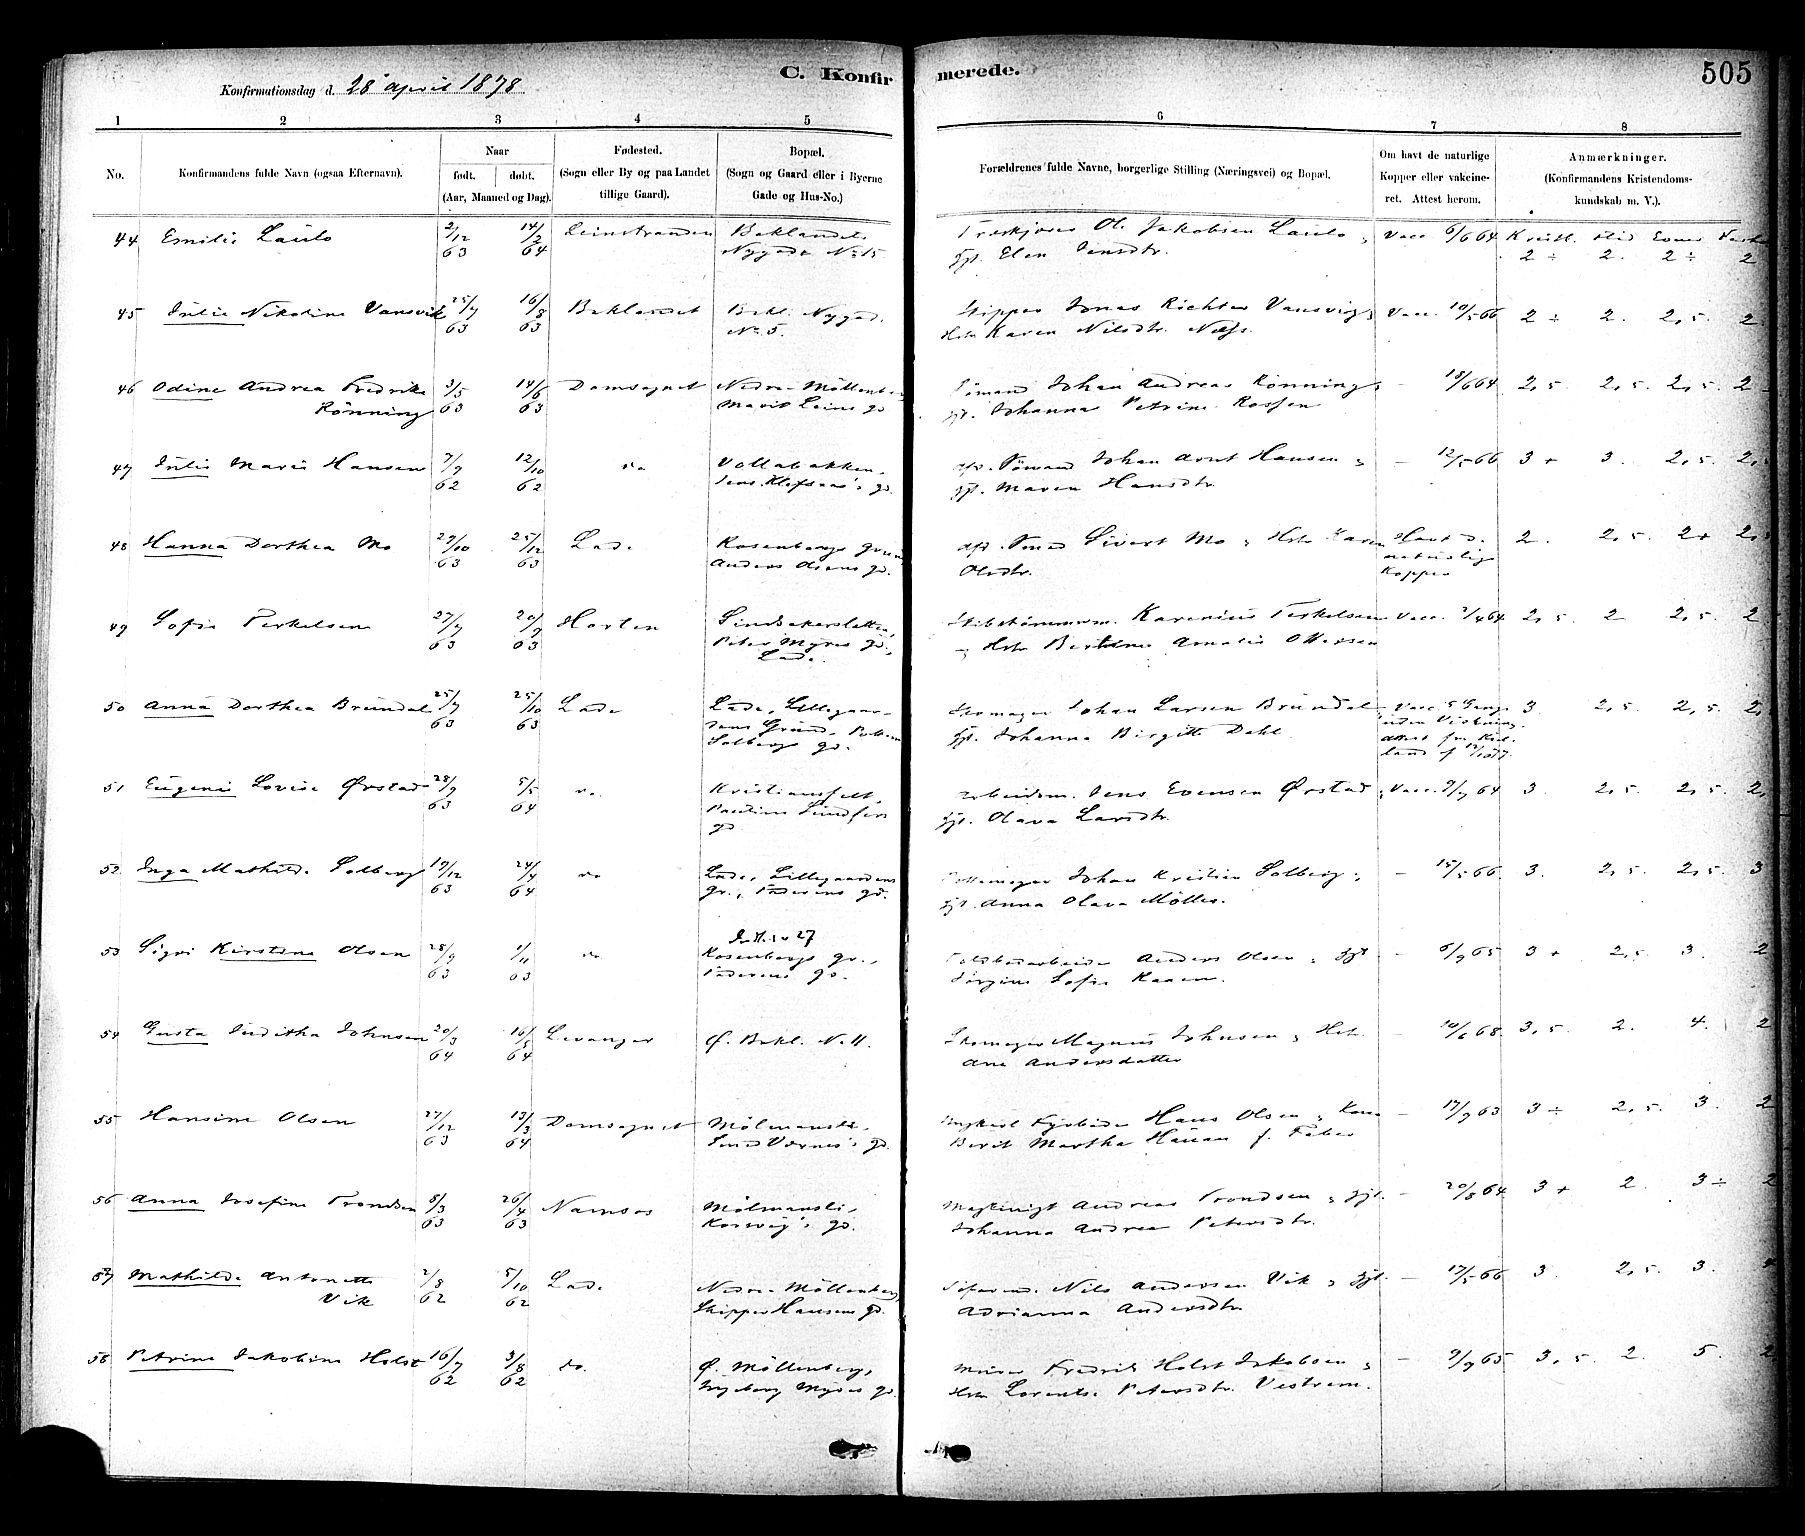 C. Konfirmerede.
505
Konfirmationsdag d. 28 april 1878
1 2 3 4 5 6 7 8
No.
Konfirmandens fulde Navn (ogsaa Efternavn).
Naar
født. døbt.
(Aar, Maaned og Dag).
Fødested.
(Sogn eller By og paa Landet
tillige Gaard).
Bopæl.
(Sogn og Gaard eller i Byerne
Gade og Hus-No.)
Forældrenes fulde Navne, borgerlige Stilling (Næringsvei) og Bopæl.
Om havt de naturlige
Kopper eller vakcine-
ret. Attest herom.
Anmærkninger.
(Konfirmandens Kristendoms-
kundskab m. V.).
44 Emilie Laulo 2/12 63 14/2 64 Leinstranden Baklandet
Nygade No 15
Ol. Jakobsen Laulo
gjt. Elen Jensdtr.
Vacc. 6/6 64 Kristd. Flid Evner
2 ÷ 2. 2 ÷ 2
45 Julie Nikoline Vansvik 25/7 63 16/8 63 Baklandet Bakl. Nygad.
No 5.
Skipper Jonas Richter Vansvig
Hstr. Karen Nilsdtr. Næss.
Vacc. 10/5 66 2 ÷ 2. 2,5. 2.
46 Odine Andrea Fredrikke
Rønning
3/5 63 14/6 63 Domsognet Nedre Möllenberg
Marit Leins gd
Sömand Johan Andreas Rönning
gjt. Johanna Petrine Rossen
– 18/6 64 2,5. 2,5. 2,5. 2
47 Julie Marie Hansen 7/9 62 12/10 62 do Vollabakken,
Jens Klefsaas's gd.
afd. Sömand Johan Arnt Hansen
gjt. Maren Hansdtr.
– 12/5 66 3 + 3. 2,5.
48 Hanna Dorthea Mo 29/10 63 25/12 63 Lade Rosenborgs grund
Anders Olsens gd.
afd. Sivert Mo Hstr. Karen
Olsdtr.
Havt d.
naturlige
Kopper
2. 2,5. 2 +
49 Sofie Terkelsen 27/7 63 20/9 63 Horten
Peter Myres gd.,
Lade.
Karenius Terkelsen
Hstr. Amalie Ottersen
Vacc. 2/4 64 2,5. 2 2,5. 2
50 Anna Dorthea Brundal 25/7 63 25/10 63 Lade Lade, Lillegaar-
dens Grund,
Solbergs gd.
Skomager Johan Larsen Brundal
gjt. Johanna Birgitte Dahl
Vacc. 5 Gange
uden Virkning.
3. 2,5. 2,5.
51 Eugenie Lovise Ørstad 28/9 63 5/5 64 do. Kristiansfelt,
gd
Arbeidsm. Jens Evensen Ørstad
gjt. Olava Larsdtr.
Vacc. 9/7 64 3. 2,5. 2,5.
52. Inga Mathilde Solberg 19/12 63 24/4 64 do Lade, Lillegaardens
gr., Faderens gd.
Pottemager Johan Kristian Solberg
gjt. Anna Olava Möller.
– 15/5 66. 3. 2,5. 2,5. 3
53 Sigri Kirstine Olsen 28/9 63 1/11 63 do
Rosenborgs gr.,
Faderens gd.
Anders Olsen gjt
Jörgine Sofie Kaaen.
– 6/9 65 3 + 2,5. 3. 2
54 Gusta Juditha Johnsen 20/3 64 16/5 64 Levanger Ø. Bakl. No 11.
Skomager Magnus Johnsen Hstr.
Ane Andersdatter
– 10/6 68. 3,5. 2. 4. 2
55 Hansine Olsen 27/12 63 13/3 64 Domsognet
Hans Olsen Kone
Berit Martha f. Faber
– 17/9 63 3 ÷ 2,5. 3. 2
56 Anna Josefine Trondsen 8/3 63 26/4 63 Namsos Mölmansli,
gd.
Maskinist Andreas Trondsen gjt.
Johanna Andrea Petersdtr.
– 20/8 64 3 + 2. 3 ÷ 2
57 Mathilde Antonette
Vik
2/8 62 5/10 62 Lade Nedre Möllenberg
Skipper Hansens gd.
Söfarend. Nils Andersen Vik gjt.
Adrianna Andersdtr.
– 17/5 66 3. 2,5. 3.
58 Petrine Jakobine Holst 16/7 62 3/8 62 do. Ø. Möllenberg,
Ingeborg Myres gd
Murer Fredrik Holst Jakobsen
Hstr Lorentse Petersdtr. Vestrem.
– 9/9 65 3,5. 2. 5. 2